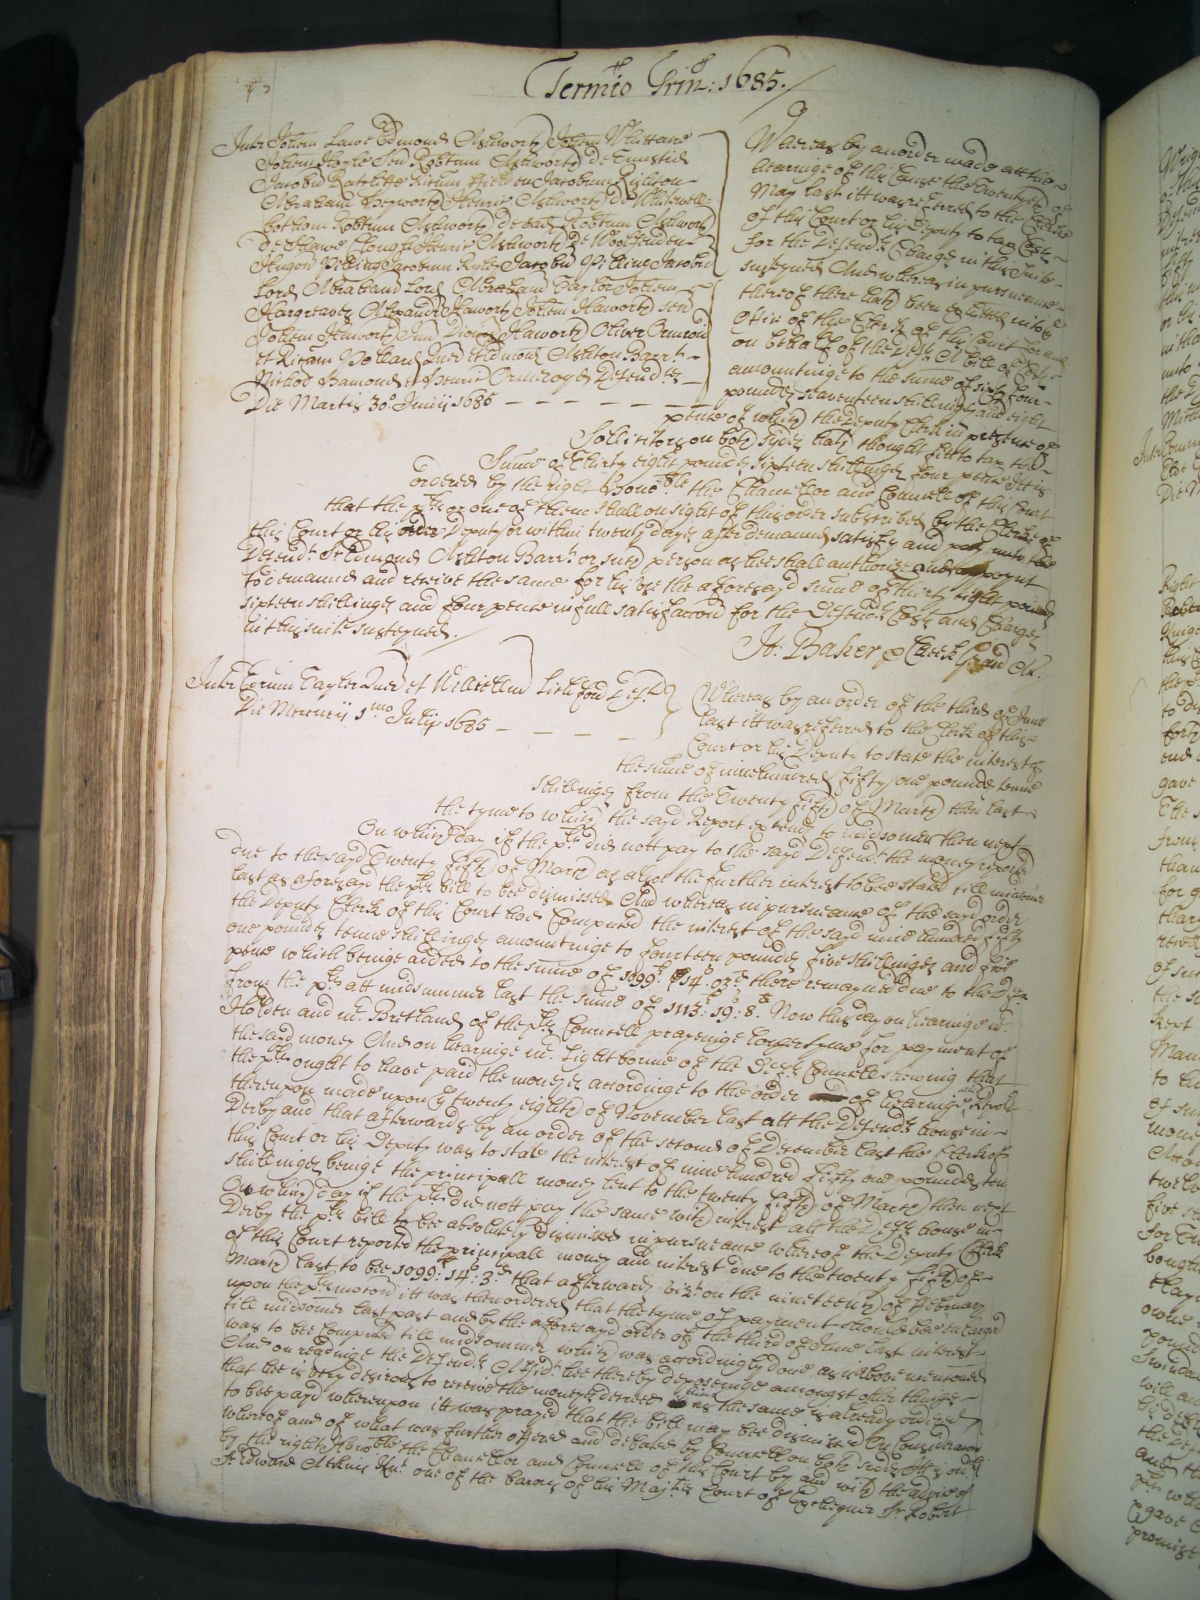 Termio Trin: 1685.
Inter Johem Lawe Edmond Ashworth Johem Whittaker
Johem Hoyle Sen Robtum Ashworth de
Jacobu Ratcliffe Ricum Jacobum Rishton
Abraham Heyworth Henric Ashworth de
Robtum Ashworth de ead Robtum Ashworth
de Hawe Clough Henric Ashworth de Woolfenden
Hugon Pilling Jacobum Ryley Jacobu Pillinge Jacobu
Lord Abraham Lord Abraham Taylor Johem
Hargreaves Alexandr Haworth Johem Haworth sen
Johem Haworth Jun Haworth Oliver Ormrod
et Ricum Pollard Quer et Edmond Ashton Barrt
Michol Hamond et Henric Ormroyd Defendtes
Die Martis 30o Junij 1685
Whereas by an order made att the
hearinge of this Cause the Twentyeth of
May last itt was referred to the Clerke
of this Court or his Deputy to tax Costs
for the Defendts Charges in this suite
susteyned And whereas in pursueance
thereof there hath been exhibited into the
office of the Clerk of this Court for and
on behalf of the Defts A bill of Costs
amountinge to the summe of sixty four
pounds seaventeen shillings and eight
pence of which the Deputy Clerk in presence of
Sollicitors on both sydes hath thought fitt to tax the
Summe of Thirty eight pounds sixteen shillings four pence Itt is
ordered by the right Honoble the Chancellor and Councell of this Court
that the plts or one of them shall on sight of this order subscribed by the Clerke of
this Court or his Deputy or within twenty days after demand satisfy and pay unto the
Defendt Sr Edmond Ashton Barrt or such person as hee shall authorize and appoynt
to demannd and receive the same for his use the aforesayd summe of thirty eight pounds
sixteen shillings and four pence in full satisfaccon for the Defendts Costs and Charges
in this suite susteyned.
Jt: Baker p Cleric
Inter Taylor Quer et Willielm Lichford Deft
Die Mercurij 1mo Julij 1685
Whereas by an order of the third of June
last itt was referred to the Clerk of this
Court or his Deputy to state the interest of
the summe of nine hundred fifty one pounds tenne
shillings from the Twenty fifth of March then last
the tyme to which the sayd Report extends to midsomer then next
On which day if the plts did nott pay to the sayd Defendt the money reported
due to the sayd Twenty fifth of March as alsoe the further interest to bee stated till midsomer
last as aforesayd the plts bill to bee dismissed And whereas in pursueance of the sayd order
the Deputy Clerk of this Court had computed the interest of the sayd nine hundred fifty
one pounds tenne shillings amountinge to fourteen pounds five shillings and five
pence which beinge added to the summe of 1099l: 14s: 03d there remayned due to the Deft
from the plts att midsummer last the summe of 1113l: 19s: 8d. Now this day on hearinge mr
Holden and mr Bretland of the plts Councell prayeinge longer tyme for payment of
the sayd money And on hearinge mr Lightbourne of the Defts Councell shewing that
the plts ought to have paid the moneyes accordinge to the order of hearinge and
thereupon made upon ye twenty eighth of November last att the Defends house in
Derby and that afterwards by an order of the second of December last the Clerke of
this Court or his Deputy was to state the interest of nine hundred fifty one pounds ten
shillings beinge the principall money lent to the twenty fifth of March then next
On which day if the plts did nott pay the same with interest att the Defts house in
Derby the plts bill to bee absolutely dismissed in pursueance whereof the Deputy Clerk
of this Court reported the principall money and interest due to the twenty fifth of
March last to bee 1099l: 14s: 3d that afterwards vizt on the nineteenth of February
upon the plts motion itt was then ordered that the tyme of payment should bee enlarged
till midsomer last past and by the aforesayd order of the third of June last interest
was to bee computed till midsommer which was accordingly done as is above mentioned
And on readinge the Defends Affidt hee thereby deposeinge amongst other thinges
that hee is very desirous to receive the moneyes decreed him as the same is already ordered
to bee payd whereupon itt was prayed that the bill may bee dismissed On Consideracon
whereof and of what was further offered and debated by Councell on both sides Itt is ordd
by the right Honoble the Chancellor and Councell of this Court by and with the advice of
Sr Edward Atkins Knt one of the barons of his Majties Court of Exchequer Sr Robert